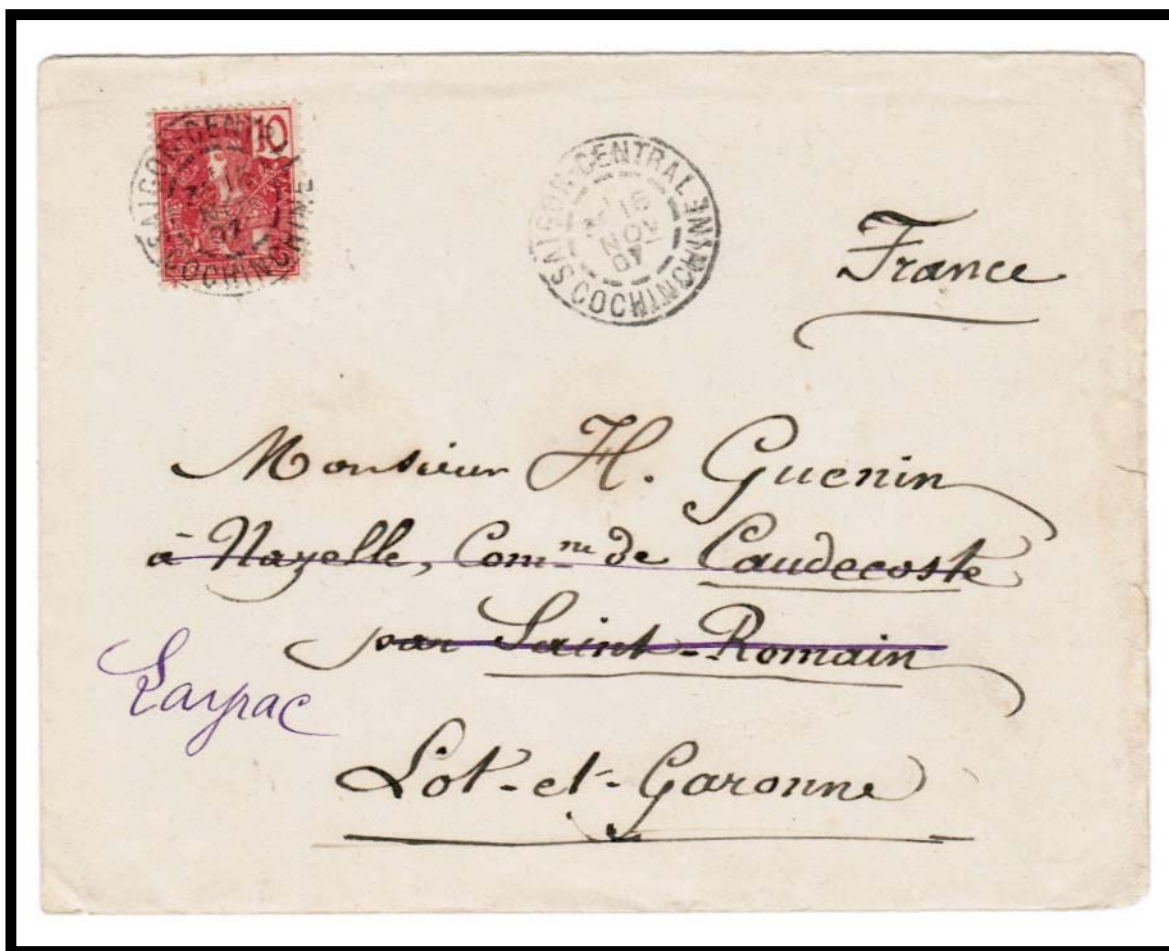 10
SAIGON-CENTRAL
COCHINCHINE
SAIGON-CENTRAL
16
NOV
07
COCHINCHINE
France
Monsieur H. Guenin
à Nazelle, Comne de Caudecoste
par Saint-Romain
Layrac
Lot-et-Garonne